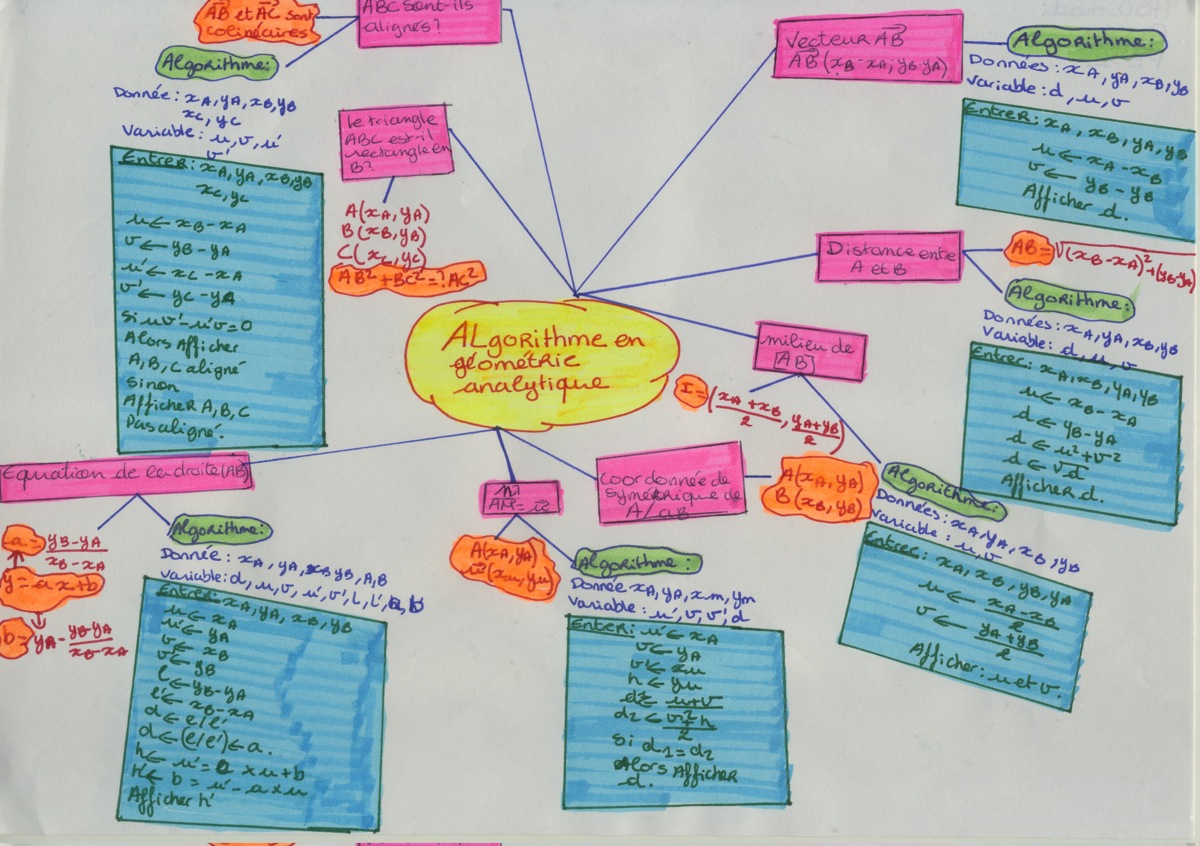 AB et AC sont
colinéaires
ABC sont-ils
alignés?
Algorithme:
Donnée: xA, yA, xB, yB
xC, yC
Variable: u, v, u'
v'
Entrer: xA, yA, xB, yB
xC, yC
u ← xB - xA
v ← yB - yA
u' ← xC - xA
v' ← yC - yA
Si uv' - u'v = 0
Alors Afficher
A, B, C aligné
Sinon
Afficher A, B, C
Pas aligné.
le triangle
ABC est-il
rectangle en
B?
A(xA, yA)
B(xB, yB)
C(xC, yC)
AB² + BC² = ? AC²
Vecteur AB
AB(xB - xA; yB - yA)
Algorithme:
Données: xA, yA, xB, yB
Variable: d, u, v
Entrer: xA, xB, yA, yB
u ← xA - xB
v ← yB - yB
Afficher d.
Distance entre
A et B
AB = √(xB - xA)² + (yB - yA)
Algorithme:
Données: xA, yA, xB, yB
Variable: d, u, v
Entrer: xA, xB, yA, yB
u ← xB - xA
d ← yB - yA
d ← u² + v²
d ← √d
Afficher d.
ALgorithme en
géométrie
analytique
milieu de
[AB]
I = (xA + xB / 2, yA + yB / 2)
Algorithme:
Données: xA, yA, xB, yB
Variable: u, v
Entrer: xA, xB, yB, yA
u ← xA - xB / 2
v ← yA + yB / 2
Afficher: u et v.
Coordonnée de
symétrique de
A/ aB
A(xA, yA)
B(xB, yB)
AM = u
A(xA, yA)
u(xu, yu)
Algorithme:
Donnée xA, yA, xm, ym
Variable: u', v, v', d
Entrer: u' ← xA
v ← yA
v ← xu
h ← yu
d1 ← u + v
2
d2 ← v + h
2
Si d1 = d2
Alors Afficher
d.
Equation de la droite (AB)
a = yB - yA / xB - xA
y = a x + b
b = yA - yB - yA / xB - xA
Algorithme:
Donnée: xA, yA, xB yB, A, B
Variable: d, u, v, u', v', l, l', a, b
Entrer: xA, yA, xB, yB
u ← xA
u' ← yA
v ← xB
v' ← yB
l ← yB - yA
l' ← xB - xA
d ← l/l'
d ← (l/l') ← a.
h ← u' = a x u + b
h' ← b = u' - a x u
Afficher h'